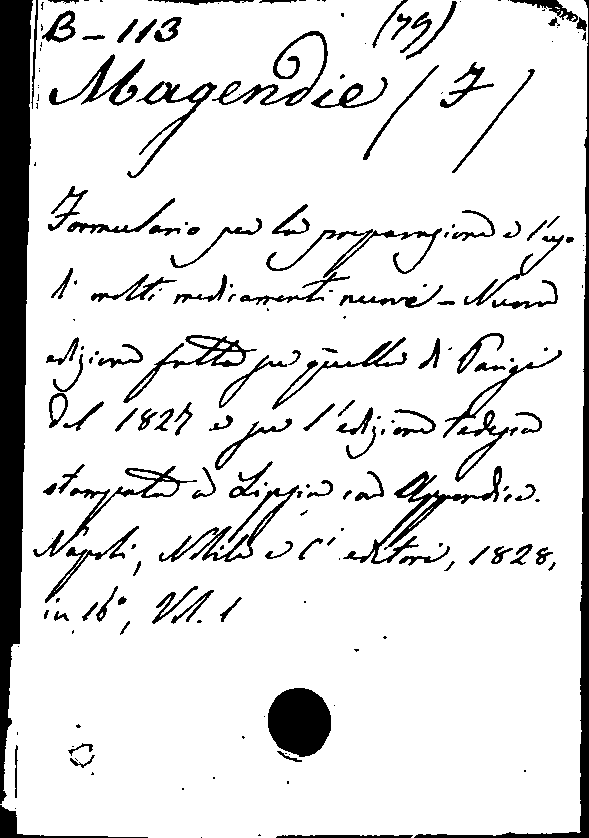 B-113 (79)
Magendie (F)
Formulario per la preparazione e l'uso
di molti medicamenti nuovi - Nuova
edizione fatta su quella di Parigi
del 1827 e su l'edizione tedesca
stampata a Lipsia con Appendice.
Napoli, Nobile e C.i editori, 1828,
in 16°, Vol. 1